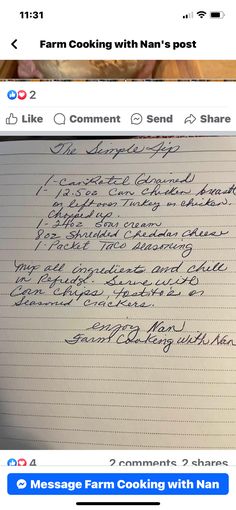 11:31
Farm Cooking with Nan's post
2
Like Comment Send Share
The Simple Dip
1- Can Rotel (drained)
1- 12.5oz Can Chicken breast
or left over Turkey or chicken.
Chopped up.
1- 24oz Sour cream
8oz Shredded Cheddar Cheese
1- Packet Taco Seasoning
Mix all ingredients and chill
in Refridge. Serve with
Corn Chips, tostito's or
Seasoned Crackers.
enjoy Nan
Farm Cooking with Nan
4
2 comments 2 shares
Message Farm Cooking with Nan